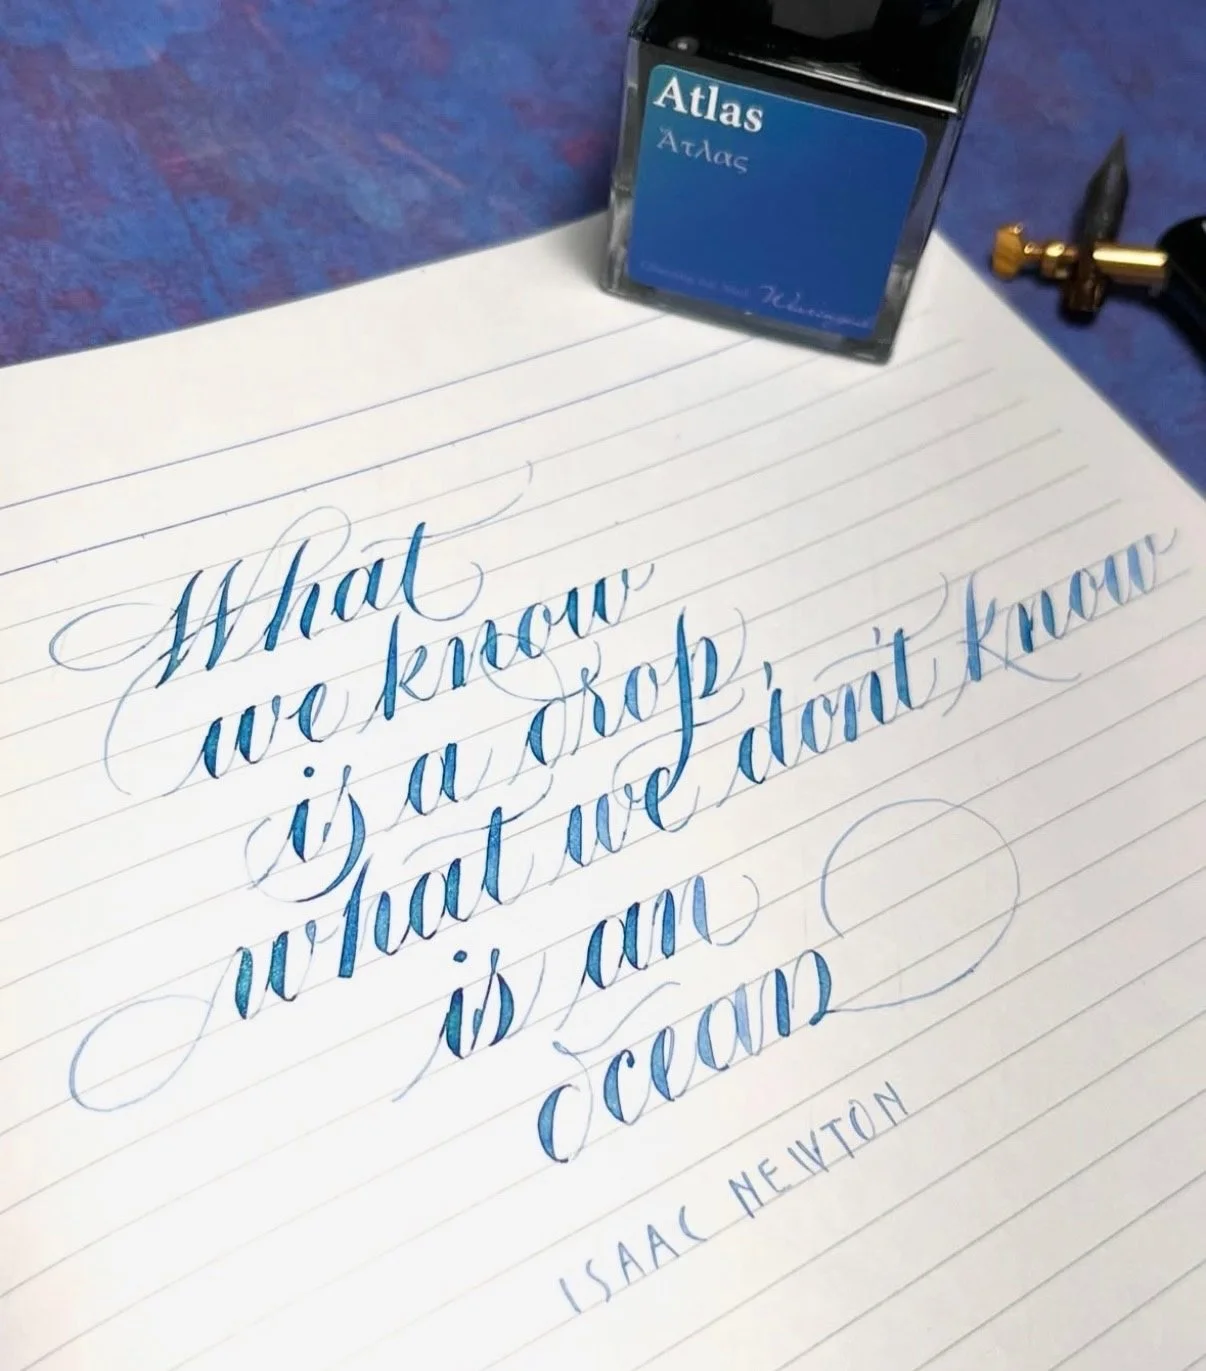 Atlas
Ἄτλας
What
we know
is a drop,
what we don't know
is an
ocean
ISAAC NEWTON